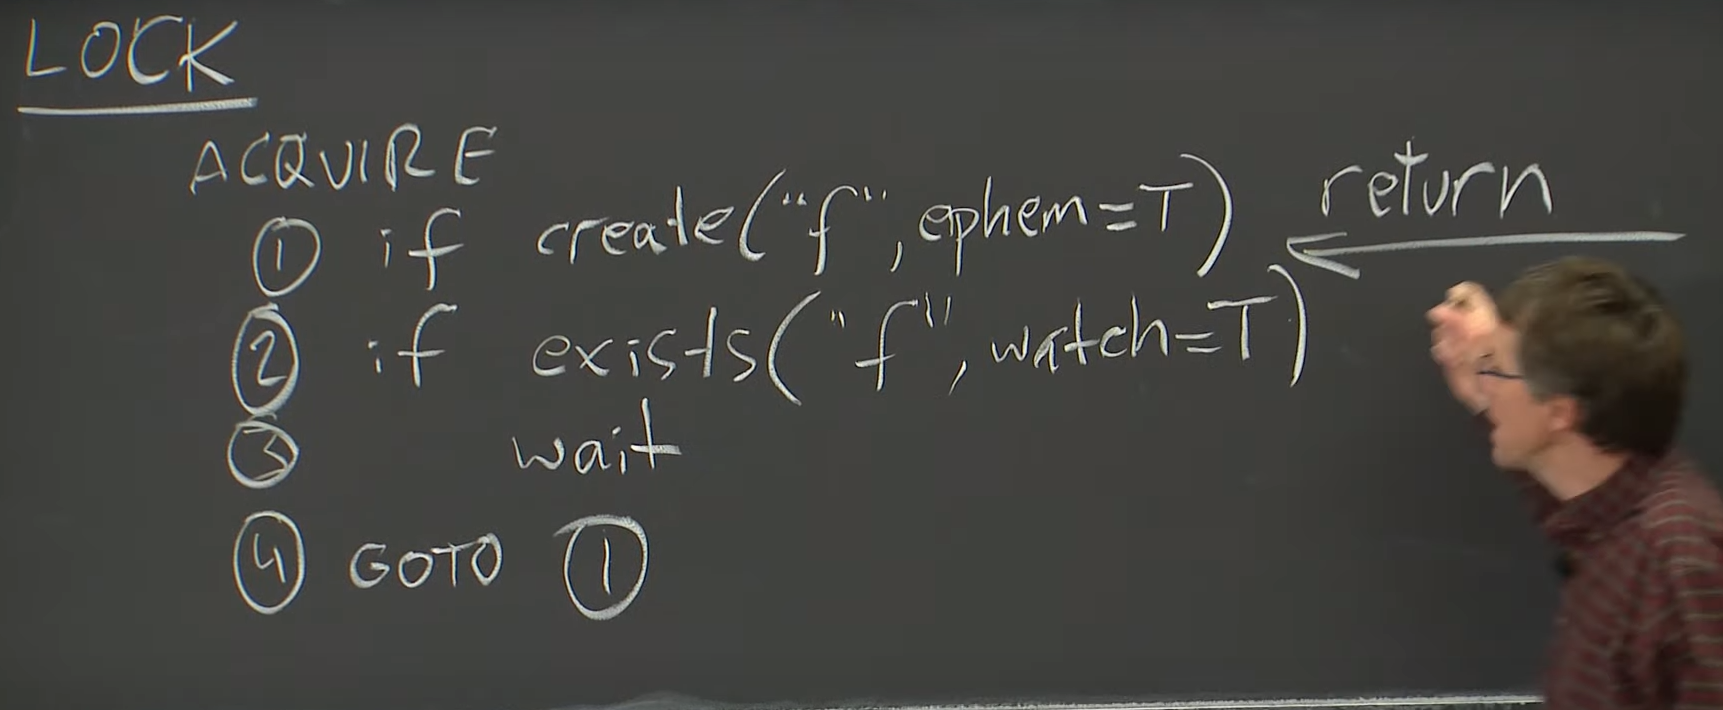 LOCK
ACQUIRE
① if create("f", ephem=T) return
② if exists("f", watch=T)
③ wait
④ GOTO ①